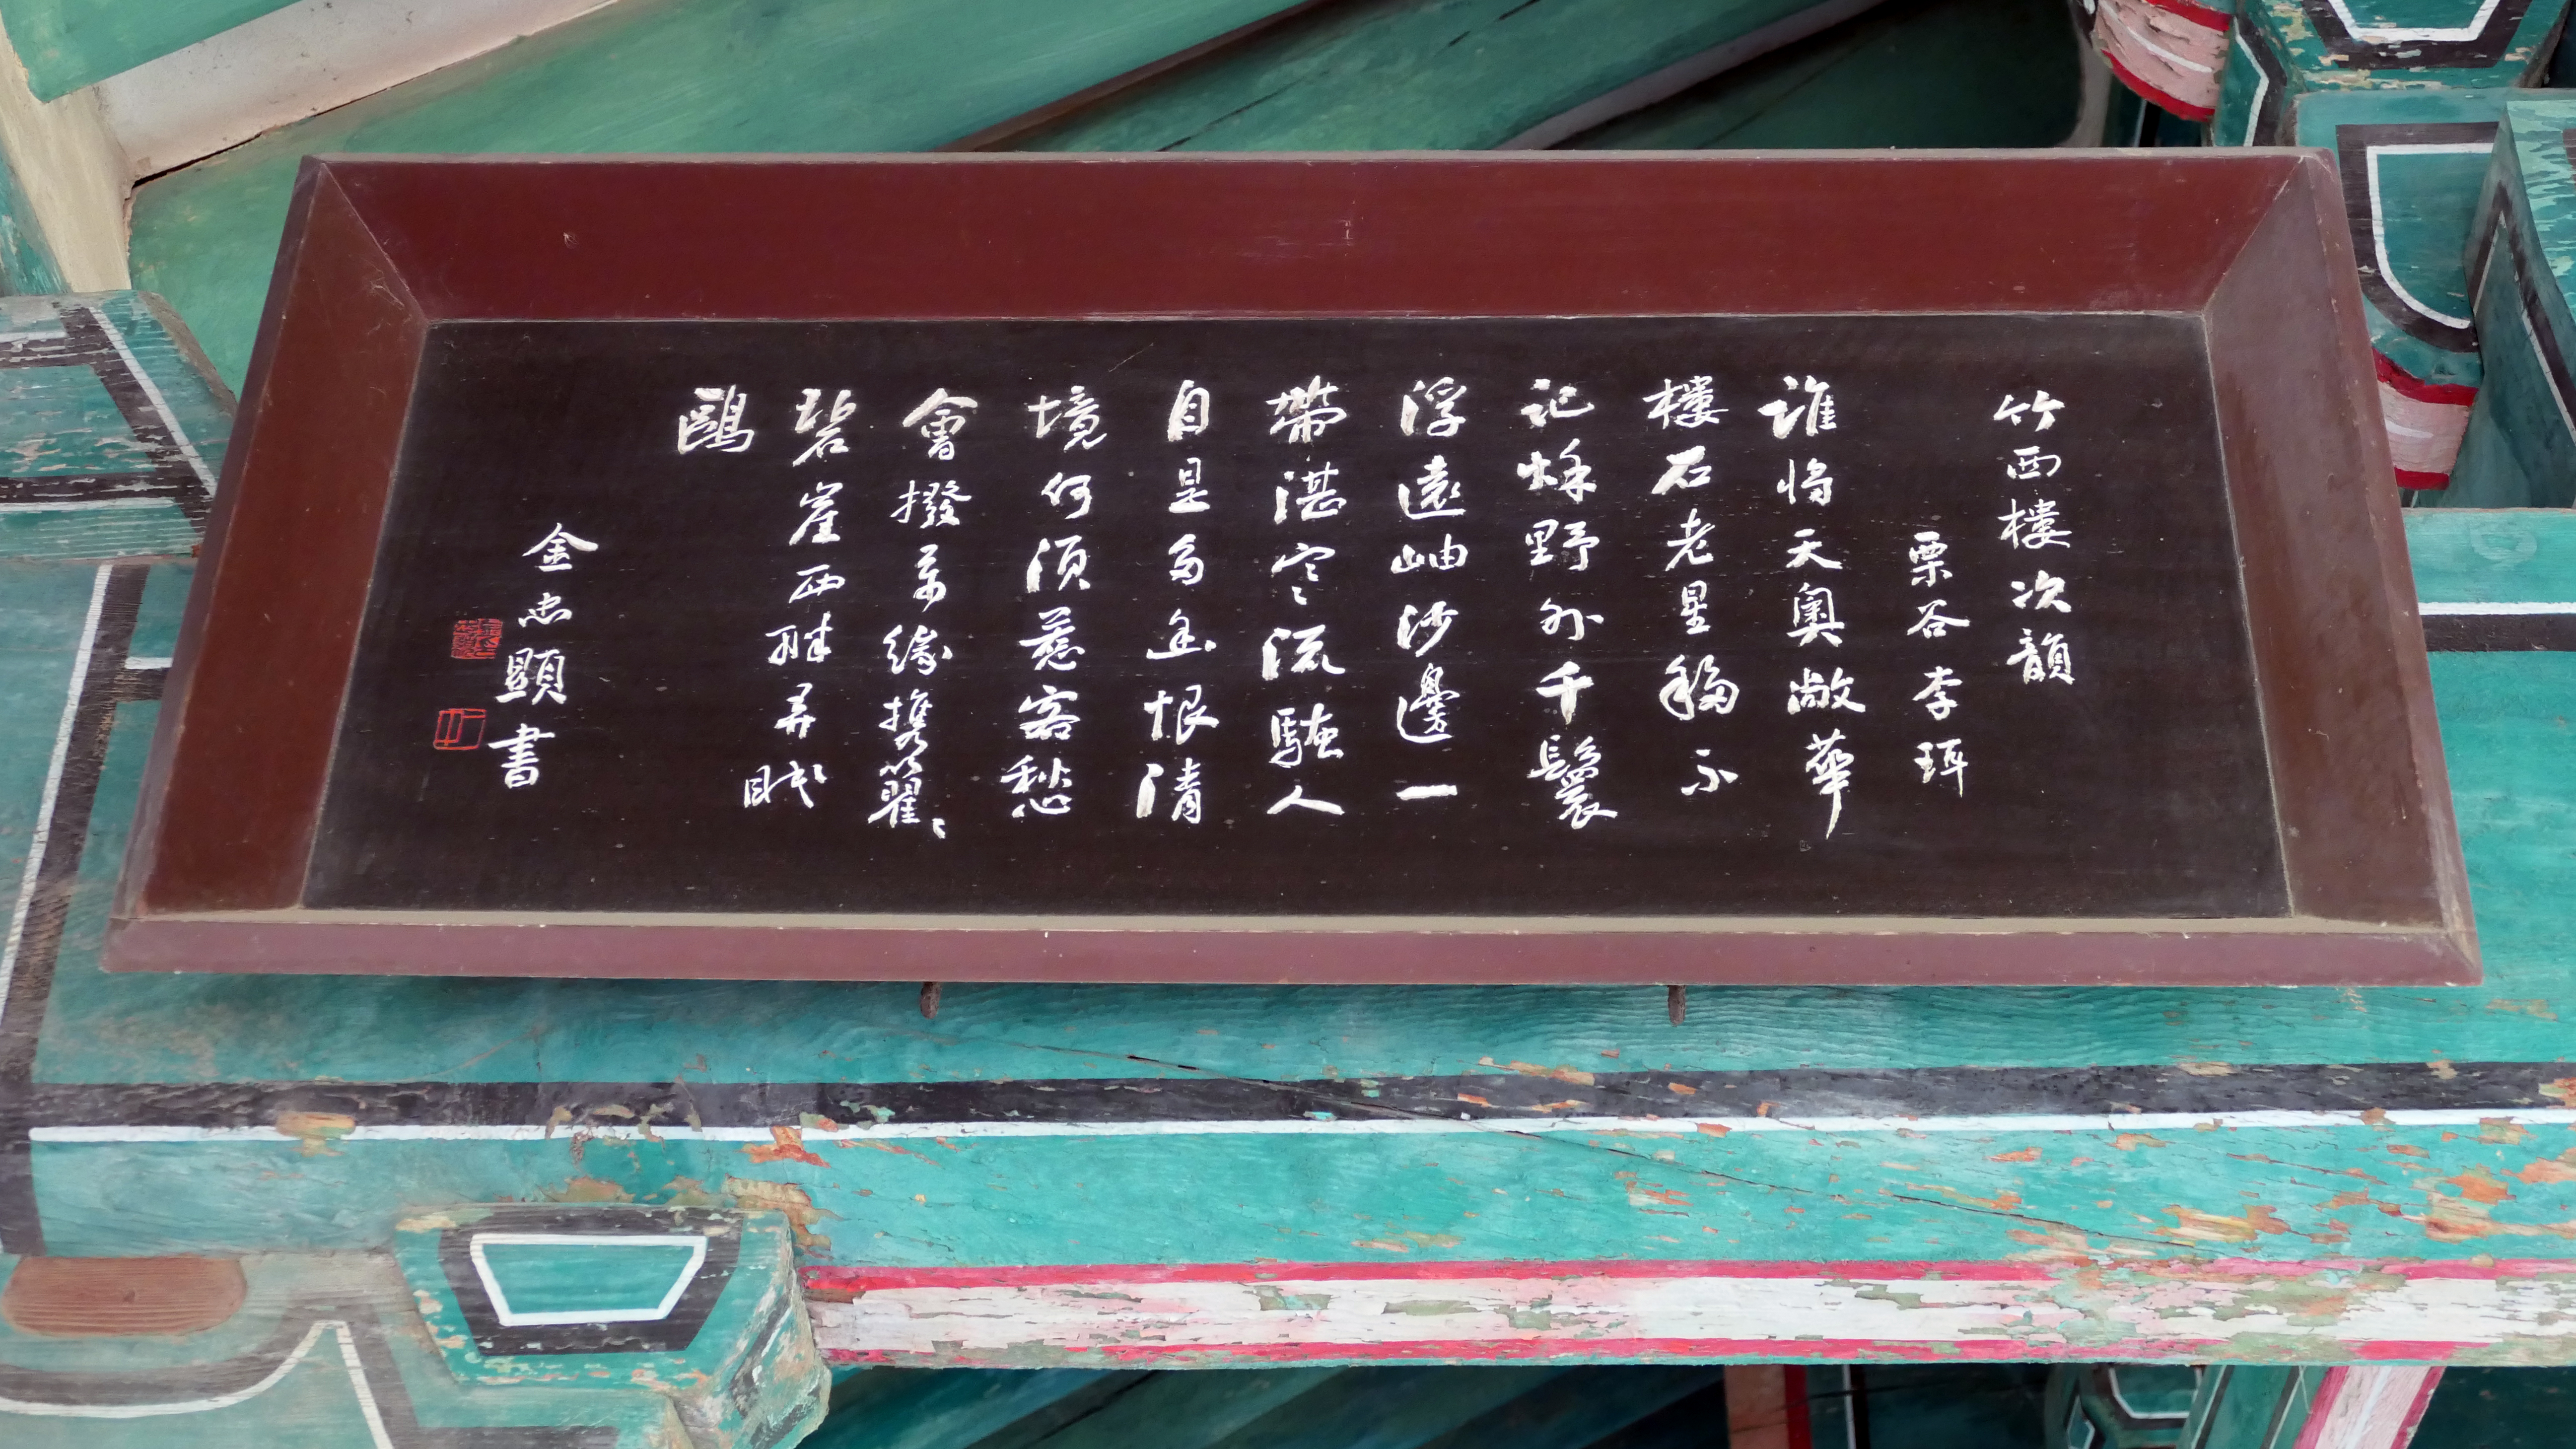 竹西樓次韻
栗谷李珥
誰將天奧敞華
樓石老星移不
記秌野外千鬟
浮遠岫沙邊一
帶湛寒流騷人
自是多幽恨清
境何須惹客愁
會撥萬緣携籊〻
碧崖西畔弄眠
鷗
金忠顯書